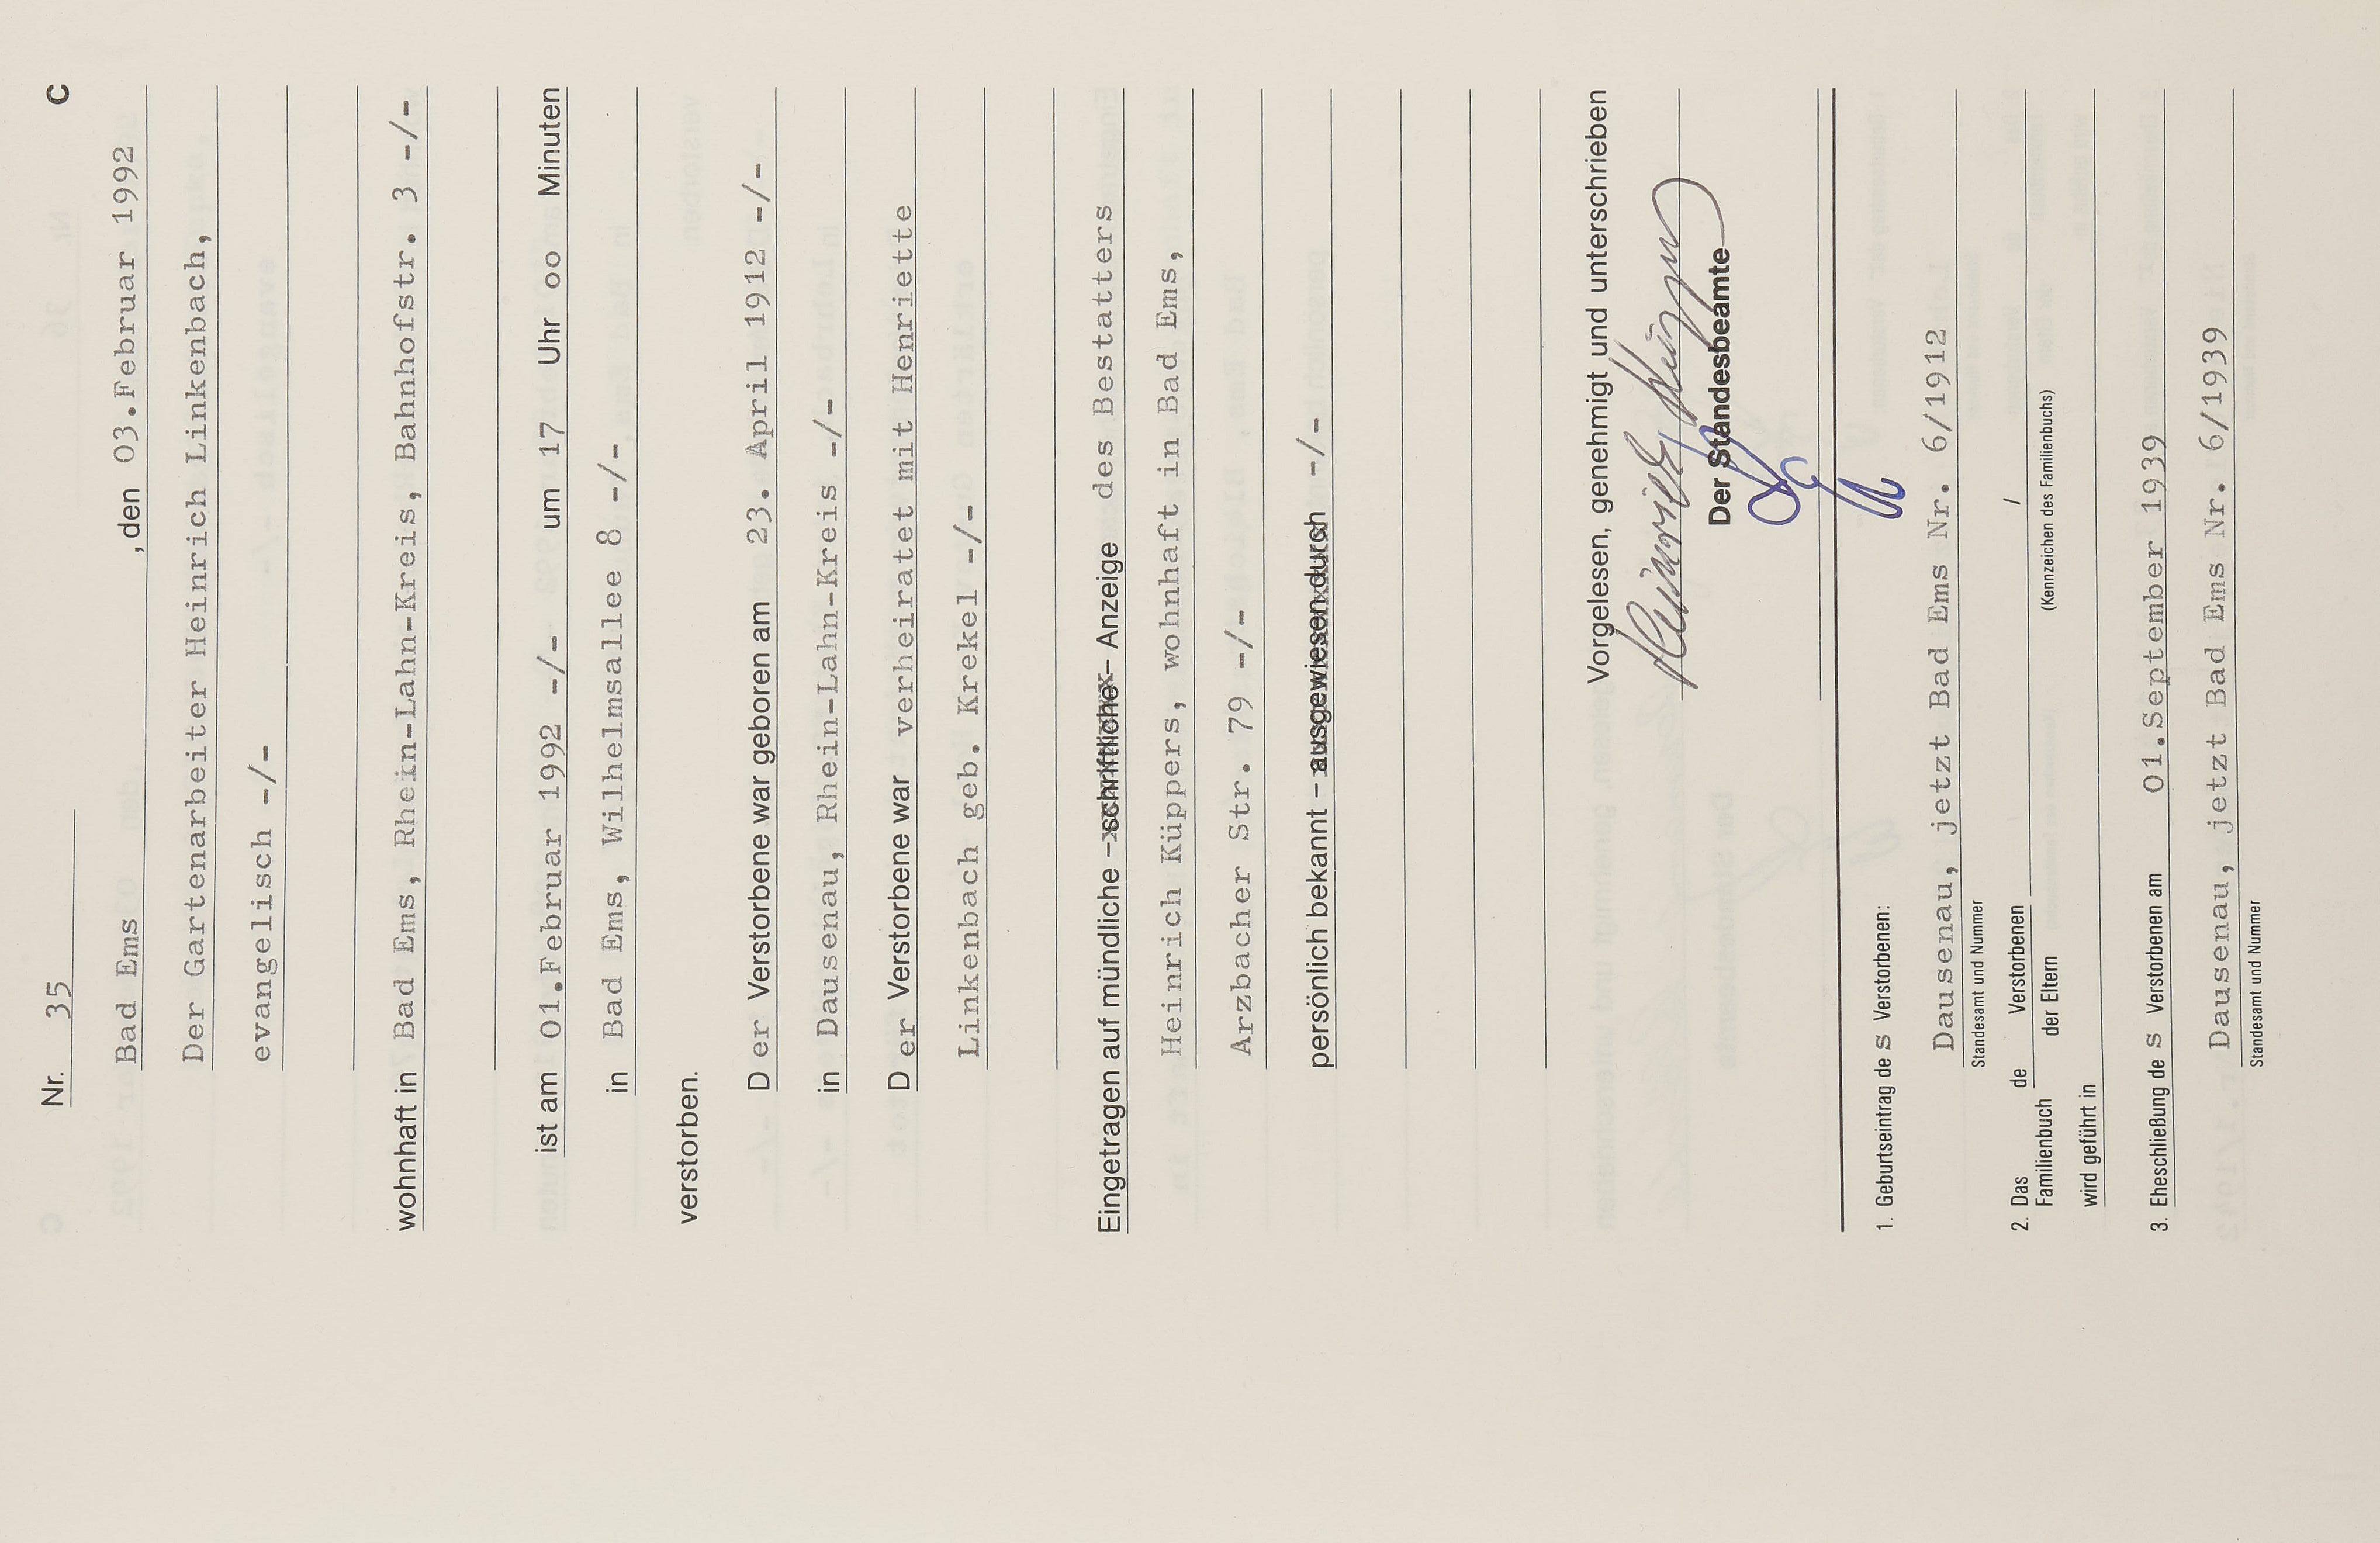 Nr. 35 C
Bad Ems , den 03.Februar 1992
Der Gartenarbeiter Heinrich Linkenbach,
evangelisch -/-
wohnhaft in Bad Ems, Rhein-Lahn-Kreis, Bahnhofstr. 3 -/-
ist am 01.Februar 1992 -/- um 17 Uhr oo Minuten
in Bad Ems, Wilhelmsallee 8 -/-
verstorben.
D er Verstorbene war geboren am 23. April 1912 -/-
in Dausenau, Rhein-Lahn-Kreis -/-
D er Verstorbene war verheiratet mit Henriette
Linkenbach geb. Krekel -/-
Eingetragen auf mündliche – schriftliche – Anzeige des Bestatters
Heinrich Küppers, wohnhaft in Bad Ems,
Arzbacher Str. 79 -/-
persönlich bekannt – ausgewiesen durch -/-
Vorgelesen, genehmigt und unterschrieben
Heinrich Küppers
Der Standesbeamte
1. Geburtseintrag de s Verstorbenen:
Dausenau, jetzt Bad Ems Nr. 6/1912
Standesamt und Nummer
2. Das Familienbuch de Verstorbenen / der Eltern
(Kennzeichen des Familienbuchs)
wird geführt in
3. Eheschließung de s Verstorbenen am 01.September 1939
Dausenau, jetzt Bad Ems Nr. 6/1939
Standesamt und Nummer